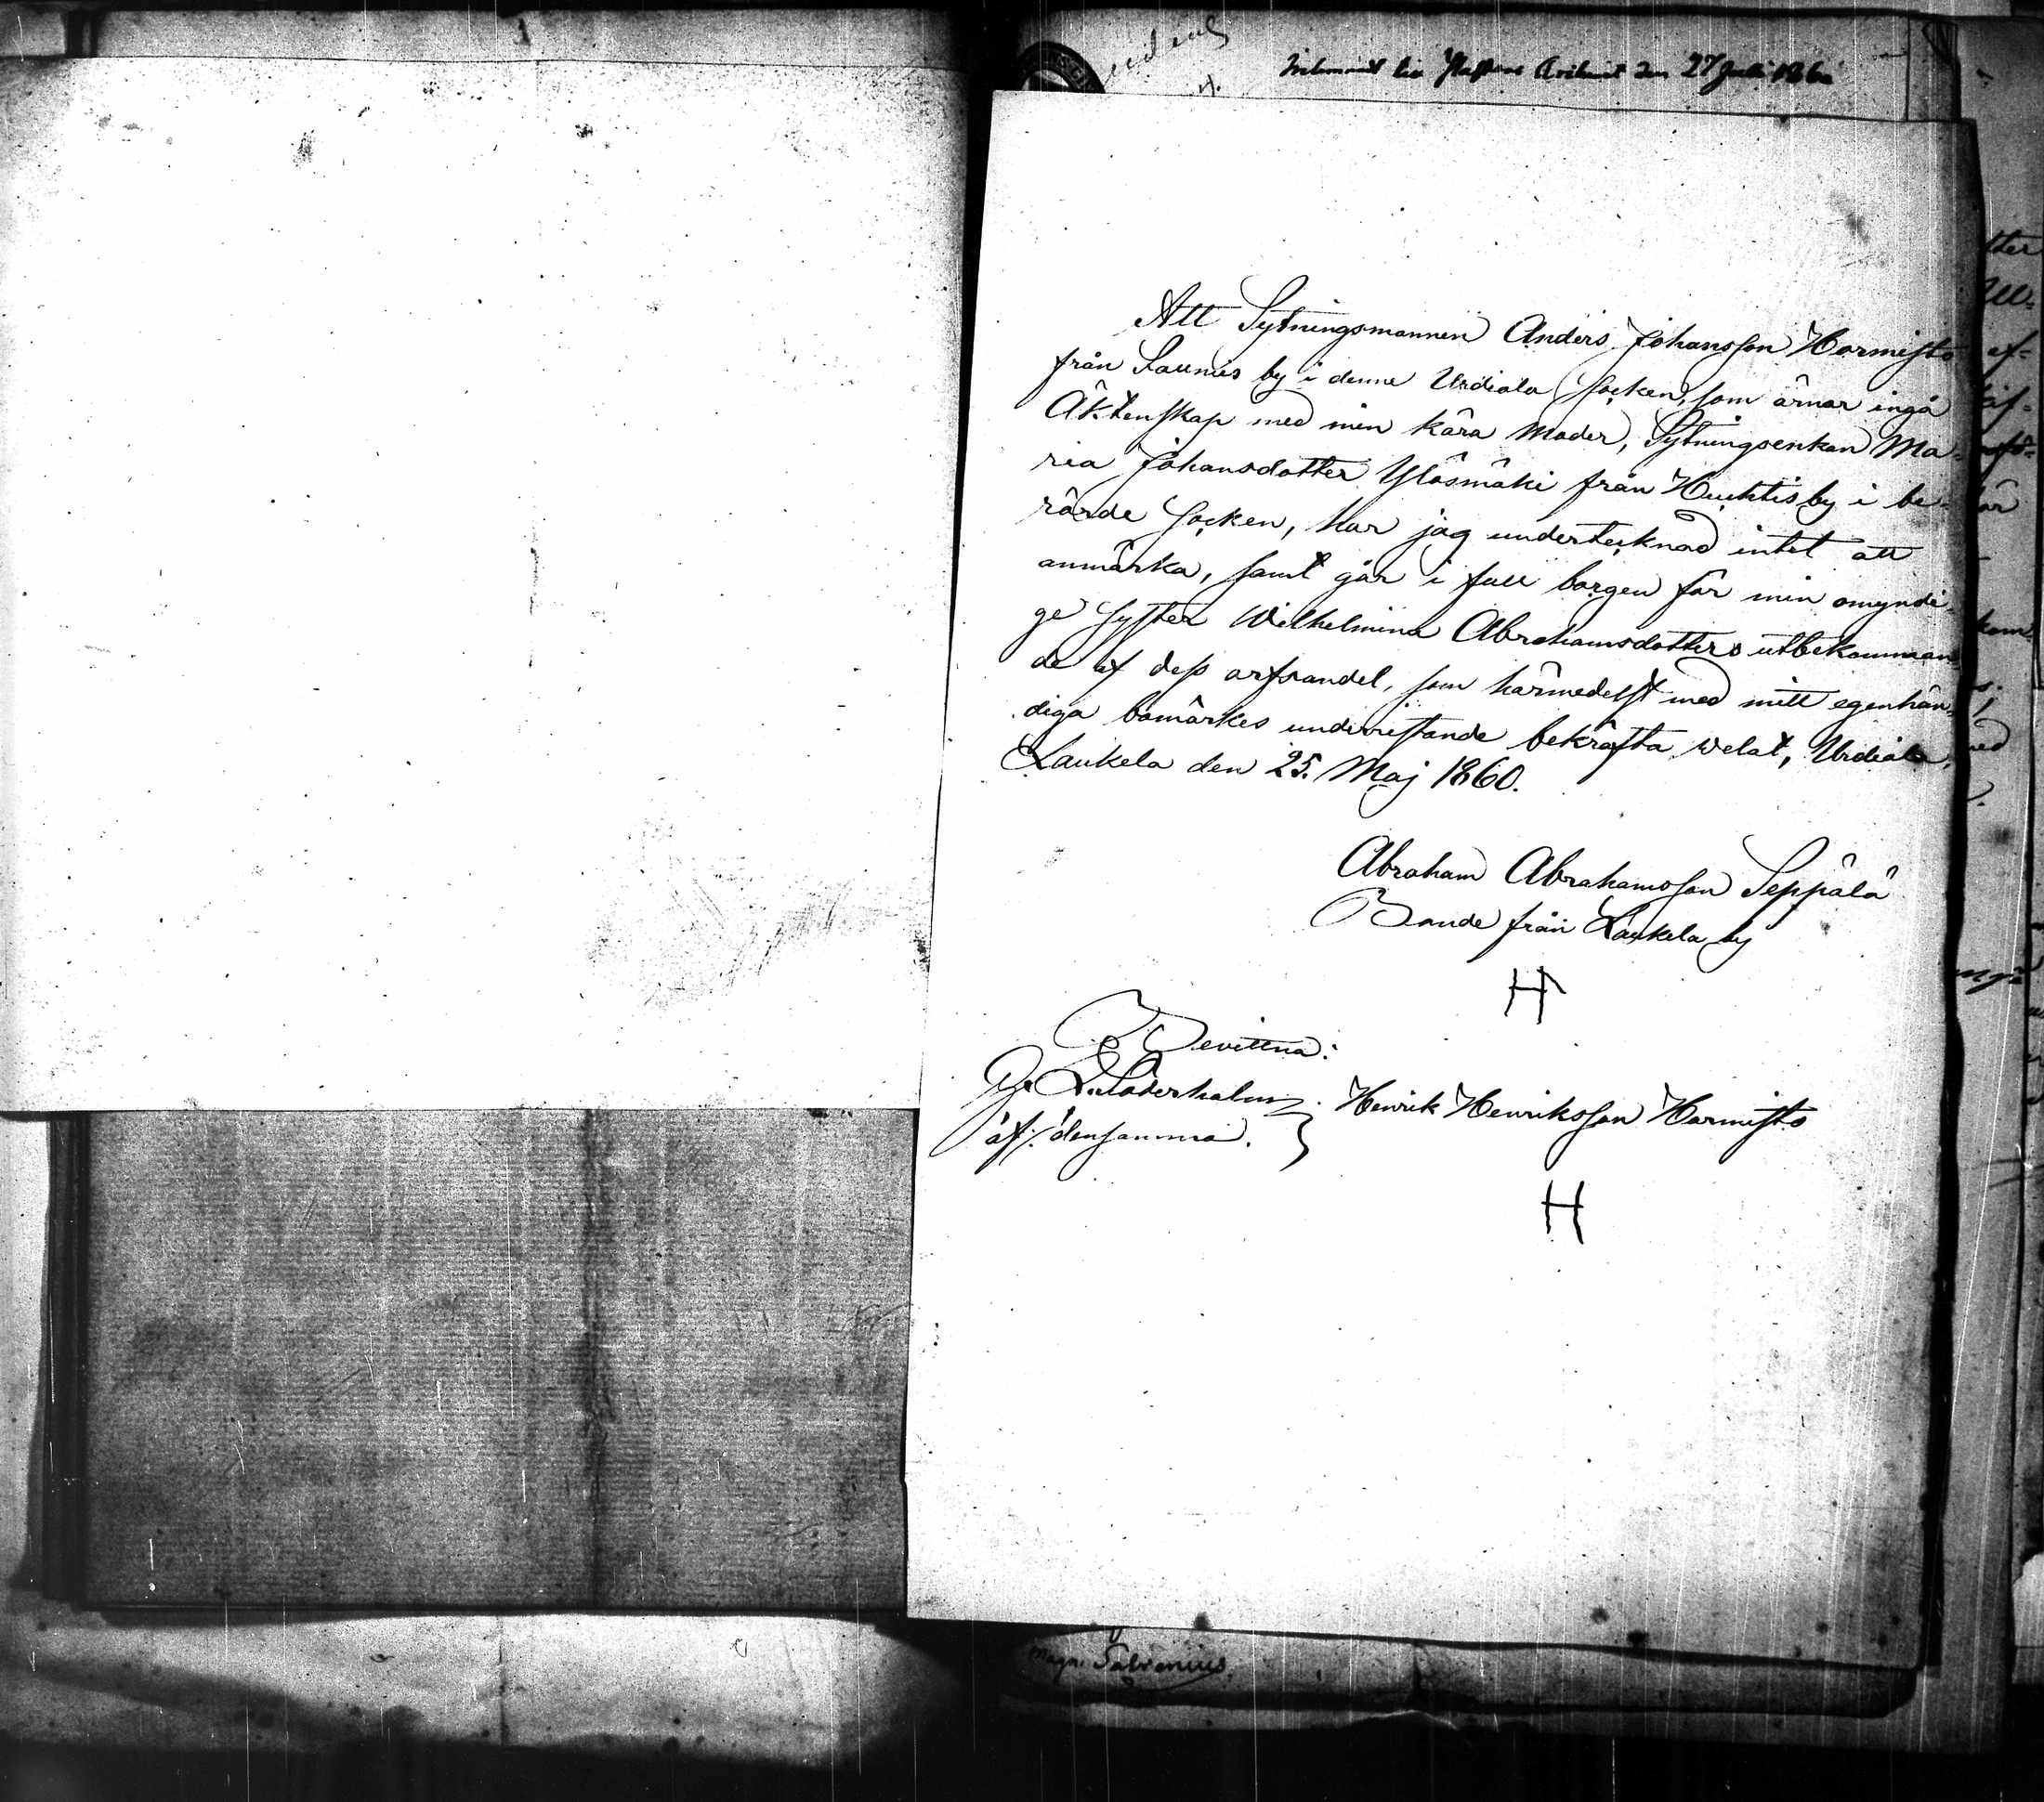 den 27 Juli 1860
Att Sytningsmannen Anders Johansson Hormisto
från Saunais by i denne Urdiala Socken, som ärnar ingå
Äktenskap med min kära Moder, Sytningsenkan Ma-
ria Johansdotter Yläsmäki från Huhtis by i be-
rörde Socken, har jag undertecknad intet att
anmärka, samt går i full borgen för min omyndi-
ge Syster Wilhelmina Abrahamsdotters utbekomman-
de af dess arfsandel, som härmedelst med mitt egenhän-
diga bomärkes underristande bekräfta welat, Urdiala,
Laukela den 25. Maj 1860.
Abraham Abrahamsson Seppälä
Bonde från Laukela by
H
Bevittna:
Söderholm Henrik Henriksson Hormisto
af densamma.
H
Magn. Salvenius